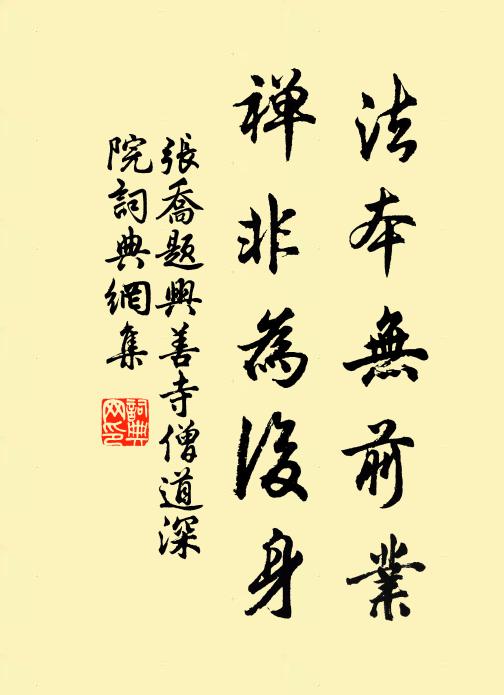 法本無前業
禅非為後身
張喬題興善寺僧道深
院詞典網集
詞典
网印